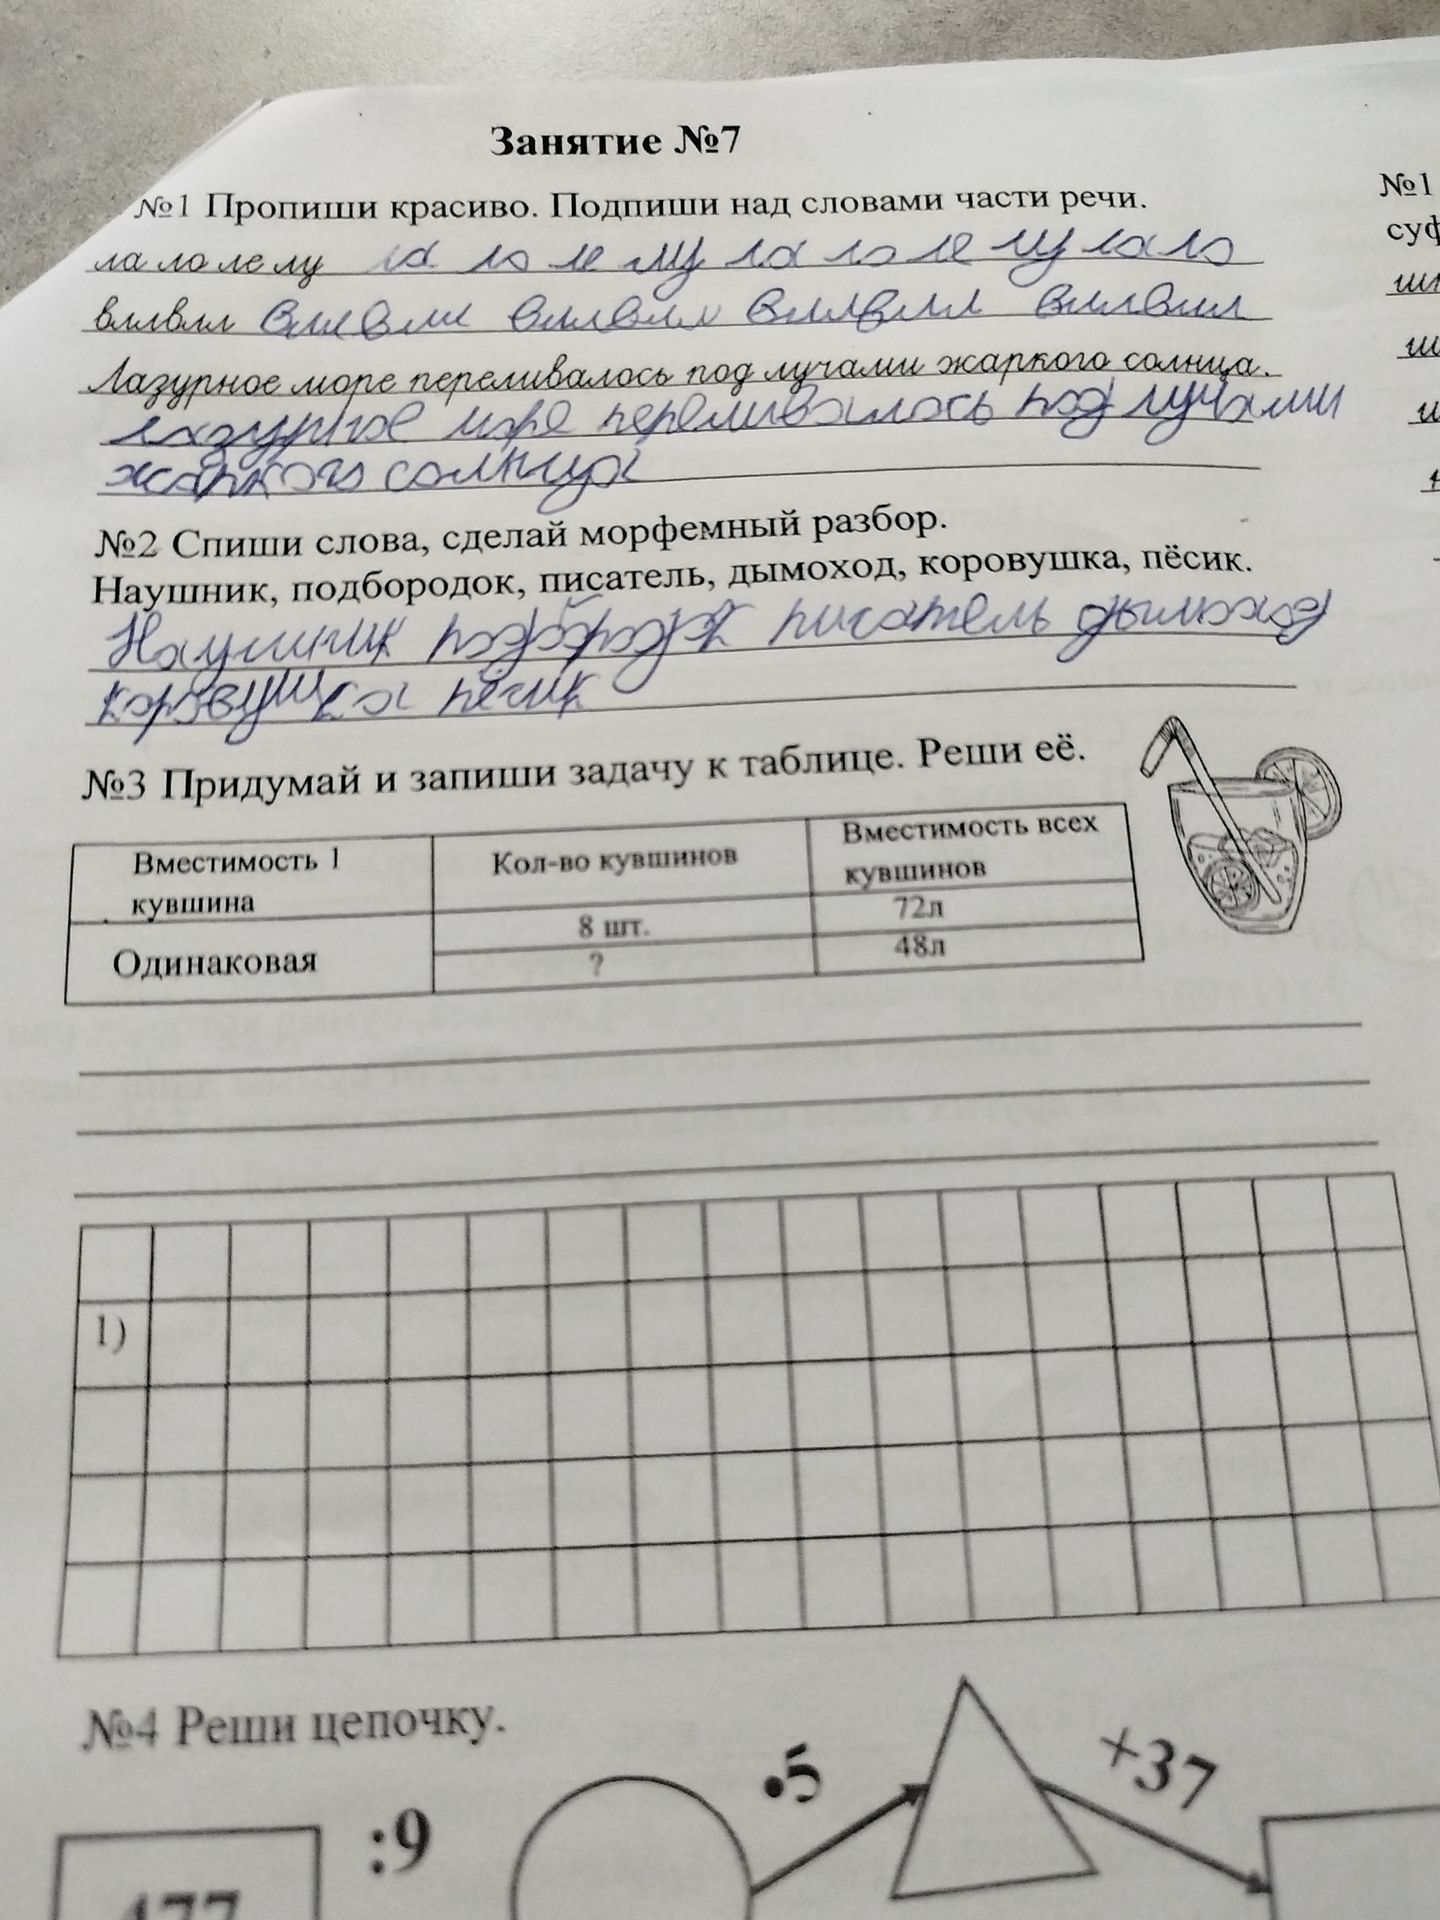 Занятие №7
№1 Пропиши красиво. Подпиши над словами части речи.
ла ло ле лу ла ло ле лу ла ло ле лу ла ло
влпвлл влпвлл влпвлл влпвлл влпвлл
Лазурное море переливалось под лучами жаркого солнца.
лазурное море переливалось под лучами
жаркого солнца
№2 Спиши слова, сделай морфемный разбор.
Наушник, подбородок, писатель, дымоход, коровушка, пёсик.
Наушник подбородок писатель дымоход
коровушка пёсик
№3 Придумай и запиши задачу к таблице. Реши её.
Вместимость 1 кувшина Кол-во кувшинов Вместимость всех кувшинов
Одинаковая 8 шт. 72л
? 48л
1)
№4 Реши цепочку.
:9 •5 +37
№1
суф